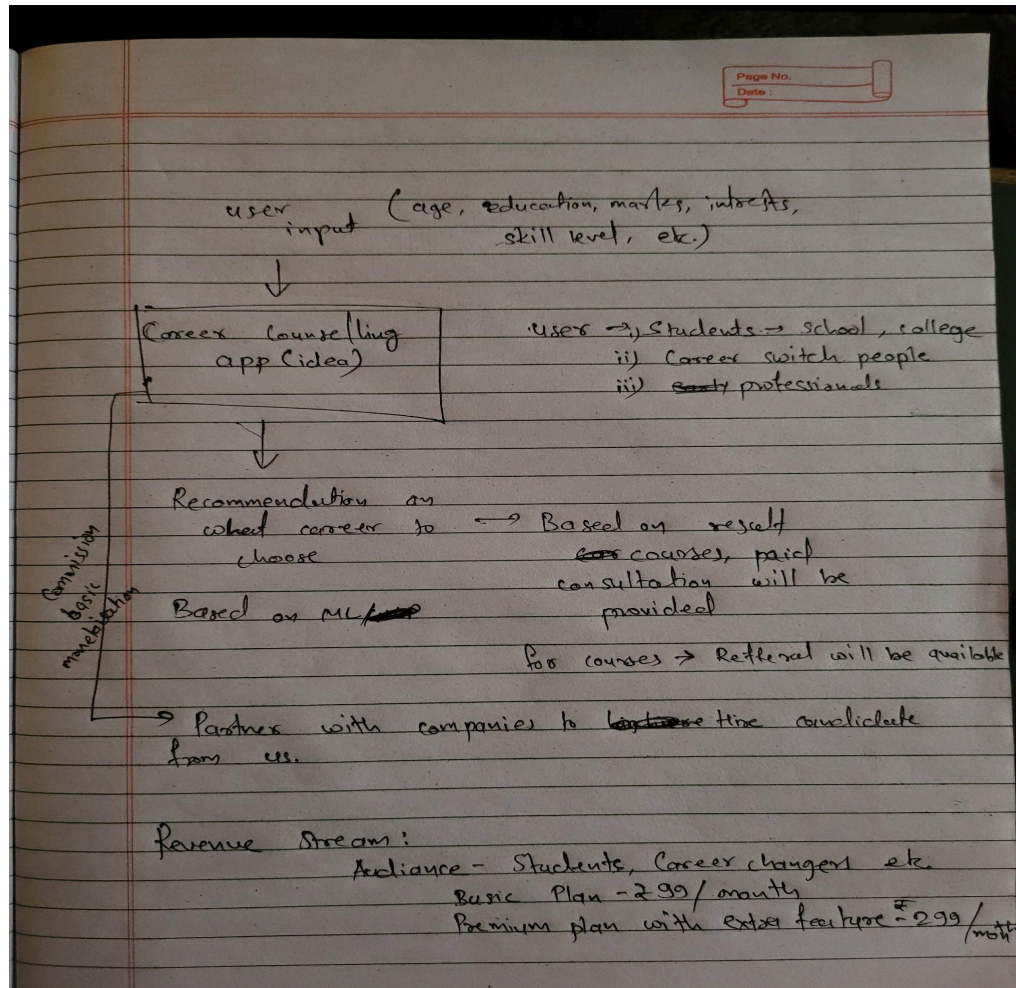 Page No.
Date :
user (age, education, marks, intrests,
input skill level, etc.)
Career Counselling
app (idea)
user → i) Students → school, college
ii) Career switch people
iii) professionals
Recommendation on
what career to
choose
→ Based on result
courses, paid
consultation will be
provided
Based on ML/
for courses → Refferal will be available
Commission
basic
monetisation
→ Partner with companies to Hire candidate
from us.
Revenue Stream:
Audiance - Students, Career changers etc.
Basic Plan - ₹99/month
Premium plan with extra feature - ₹299/month